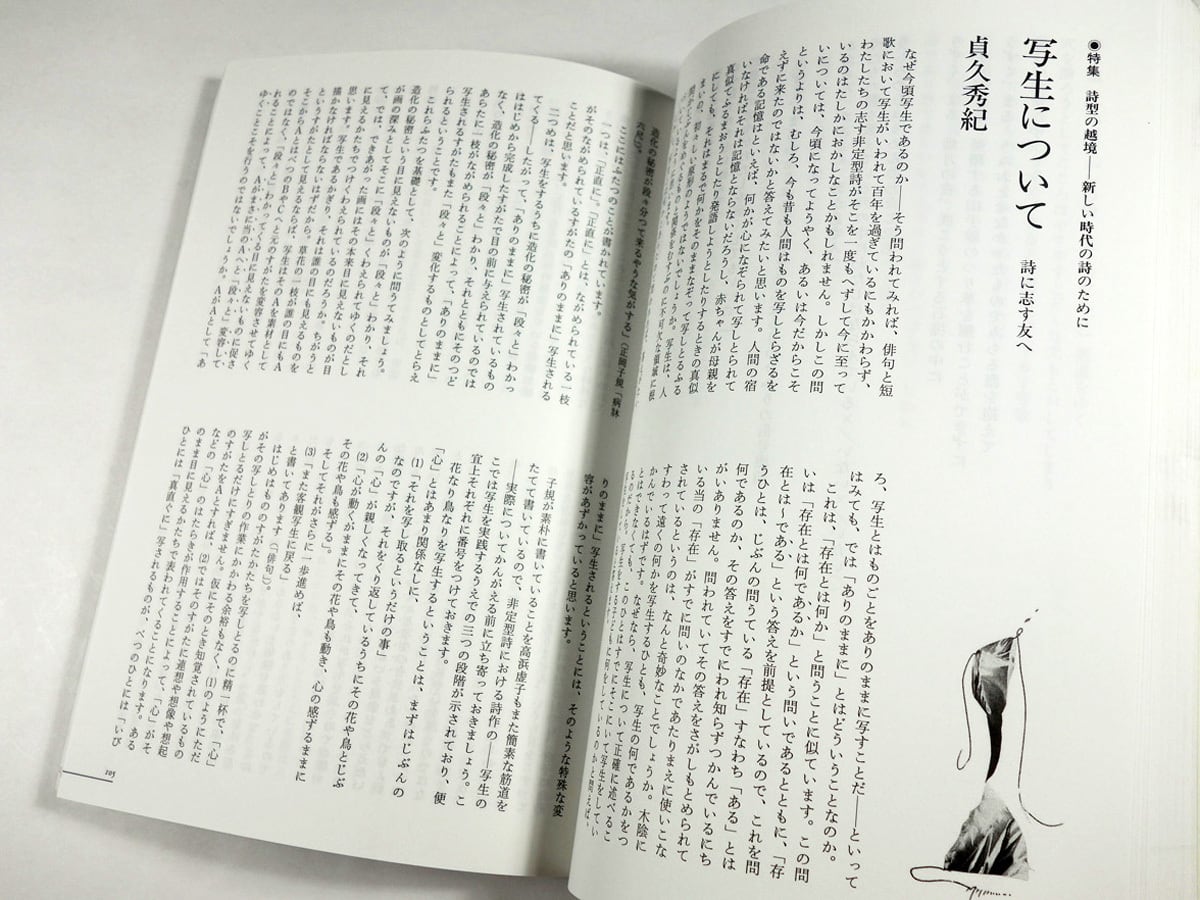 ◉特集　詩型の越境——新しい時代の詩のために
写生について　詩に志す友へ
貞久秀紀
なぜ今頃写生であるのか——そう問われてみれば、俳句と短
歌において写生がいわれて百年を過ぎているにもかかわらず、
わたしたちの志す非定型詩がそこを一度もへずして今に至って
いるのはたしかにおかしなことかもしれません。しかしこの問
いについては、今頃になってようやく、あるいは今だからこそ
というよりは、むしろ、今も昔も人間はものを写しとらざるを
えずに来たのではないかと答えてみたいと思います。人間の宿
命である記憶はといえば、何かが心になぞられて写しとられて
いなければそれは記憶とならないだろうし、赤ちゃんが母親を
真似てふるまおうとしたり発語しようとしたりするときの真似
にしても、それはまるで何かをそのままなぞって写しとるふる
まいの、初々しい原形のようではないでしょうか。写生は、人
ろ、写生とはものごとをありのままに写すことだ——といって
はみても、では「ありのままに」とはどういうことなのか。
これは、「存在とは何か」と問うことに似ています。この問
いは「存在とは何であるか」という問いであるとともに、「存
在とは〜である」という答えを前提としているので、これを問
うひとは、じぶんの問うている「存在」すなわち「ある」とは
何であるのか、その答えをすでにわれ知らずつかんでいるにち
がいありません。問われていてその答えをさがしもとめられて
いる当の「存在」がすでに問いのなかであたりまえに使いこな
されているというのは、なんと奇妙なことでしょうか。木陰に
すわって遠くの何かを写生するひとも、写生の何であるかをつ
かんでいるはずです。なぜなら、写生について正確に述べるこ
とはできなくても、このひとはすでにそこにいて写生をしてい
造化の秘密が段々分つて来るやうな気がする」（正岡子規「病牀
六尺」）。
ここにはふたつのことが書かれています。
一つは、「正直に」。「正直に」とは、ながめられている一枝
がそのながめられているすがたの「ありのままに」写生される
ことだと思います。
二つめは、写生をするうちに造化の秘密が「段々と」わかっ
てくる——したがって、「ありのままに」写生されているもの
ははじめから完成したすがたで目の前に与えられているのでは
なく、造化の秘密が「段々と」わかり、それとともにそのつど
あらたに一枝がながめられることによって、「ありのままに」
写生されるすがたもまた「段々と」変化するものとしてとらえ
られるということです。
これらふたつを基礎として、次のように問うてみましょう。
造化の秘密という目に見えないものが「段々と」わかり、それ
が画の深みとしてそこに「段々と」くわえられてゆくのだとし
て、では、できあがった画にはその本来目に見えないものが目
に見えるかたちでつけくわえられているのだろうか。ちがうと
思います。写生であるかぎり、それは誰の目にも見えるものを
描かなければならないはずだから。草花の一枝が誰の目にもA
というすがたとして見えるならば、写生はそのAを素材として
そこからAとはべつのBやCへと元のすがたを変容させてゆく
のではなく、「段々と」わかってくる目に見えないものに促さ
れることによって、Aがまさに当のAへと「段々と」変容して
ゆくことこそを行うのではないでしょうか。AがAとして「あ
りのままに」写生されるということには、そのような特殊な変
容があずかっていると思います。
子規が素朴に書いていることを高浜虚子もまた簡素な筋道を
たてて書いているので、非定型詩における詩作の——写生の
——実際についてかんがえる前に立ち寄っておきましょう。こ
こでは写生を実践するうえでの三つの段階が示されており、便
宜上それぞれに番号をつけておきます。
花なり鳥なりを写生するということは、まずはじぶんの
「心」とはあまり関係なしに、
(1)「それを写し取るというだけの事」
なのですが、それをくり返しているうちにその花や鳥とじぶ
んの「心」が親しくなってきて、
(2)「心が動くがままにその花や鳥も動き、心の感ずるままに
その花や鳥も感ずる」。
そしてそれがさらに一歩進めば、
(3)「また客観写生に戻る」
と書いてあります（『俳句』）。
はじめはもののすがたかたちを写しとるのに精一杯で、「心」
がその写しとりの作業にかかわる余裕もなく、(1)のようにただ
写しとるだけにすぎません。仮にそのとき知覚されているもの
のすがたをAとすれば、(2)ではそのすがたに連想や想像や想起
などの「心」のはたらきが作用することによって、「心」がそ
のまま目に見えるかたちで表われてくることになります。ある
ひとには「真直ぐに」写されるものが、べつのひとには「いび
105